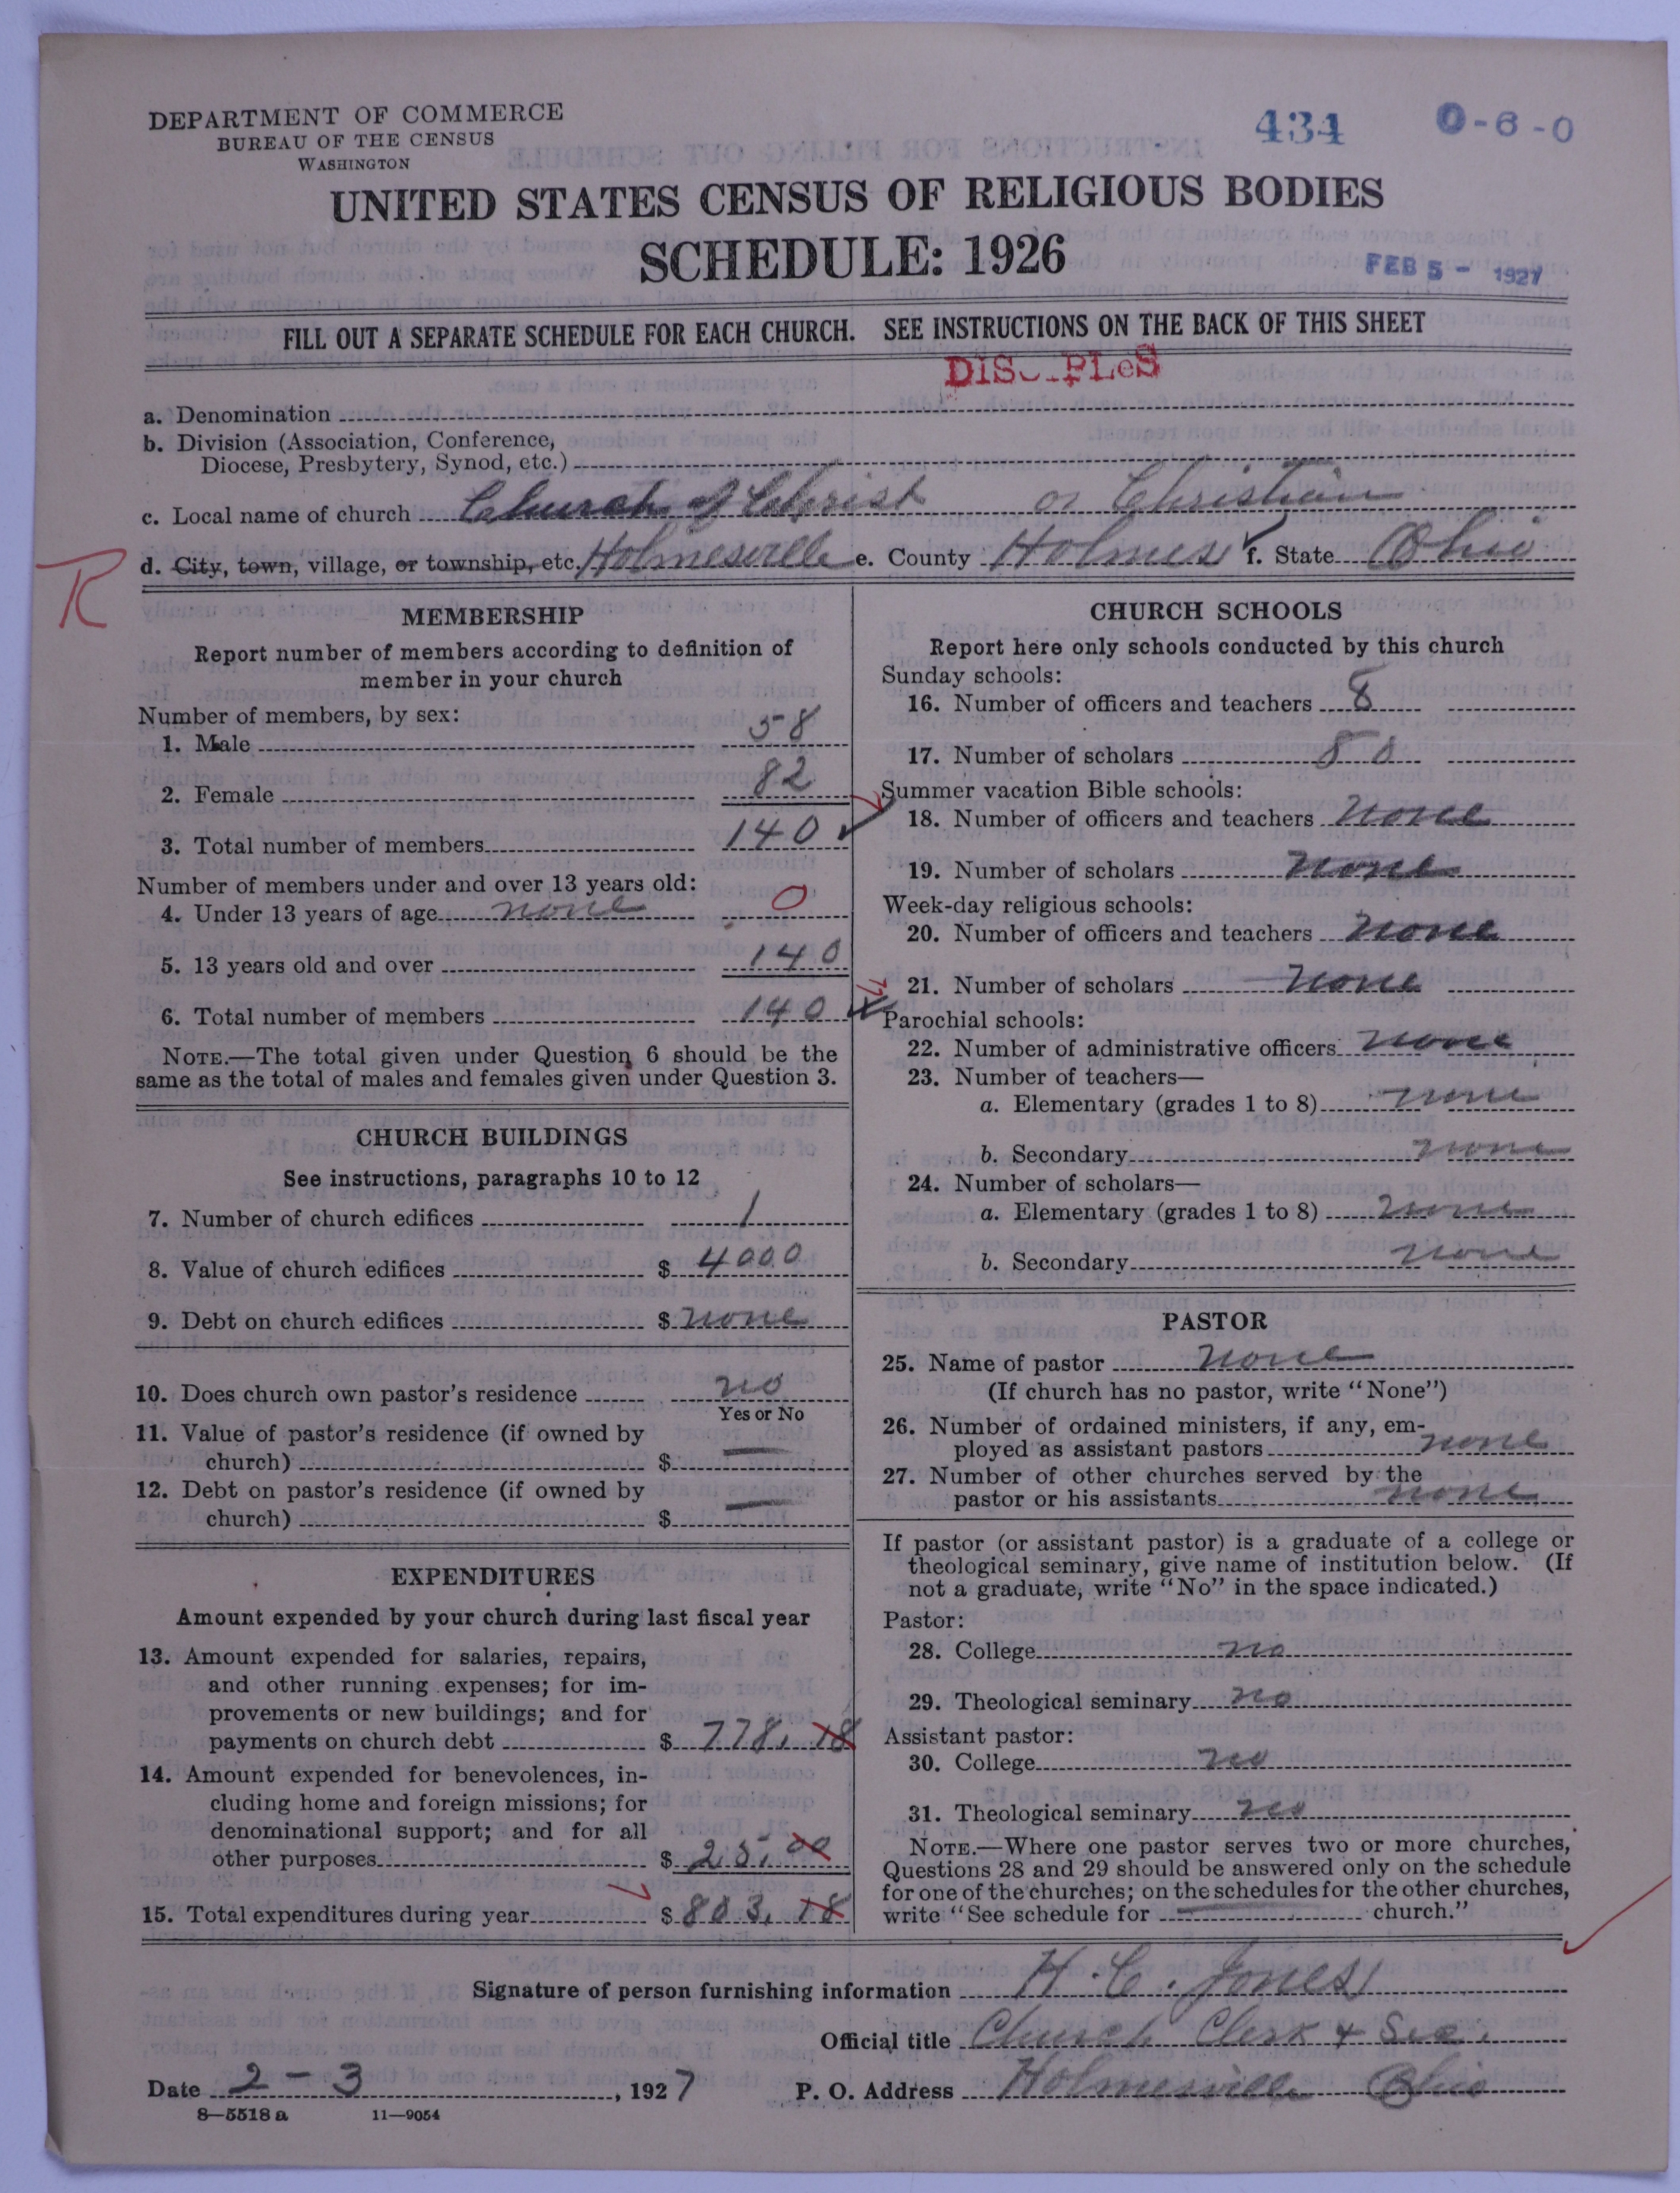 DEPARTMENT OF COMMERCE
BUREAU OF THE CENSUS
WASHINGTON
434
0-6-0
UNITED STATES CENSUS OF RELIGIOUS BODIES
SCHEDULE: 1926
FEB 5 - 1927
FILL OUT A SEPARATE SCHEDULE FOR EACH CHURCH. SEE INSTRUCTIONS ON THE BACK OF THIS SHEET
DISCIPLES
a. Denomination
b. Division (Association, Conference,
Diocese, Presbytery, Synod, etc.)
c. Local name of church Church of Christ or Christian
R
d. City, town, village, or township, etc. Holmesville e. County Holmes f. State Ohio
MEMBERSHIP
Report number of members according to definition of
member in your church
Number of members, by sex:
1. Male 58
2. Female 82
3. Total number of members 140
Number of members under and over 13 years old:
4. Under 13 years of age none 0
5. 13 years old and over 140
6. Total number of members 140
NOTE.—The total given under Question 6 should be the
same as the total of males and females given under Question 3.
CHURCH BUILDINGS
See instructions, paragraphs 10 to 12
7. Number of church edifices 1
8. Value of church edifices $ 4000
9. Debt on church edifices $ none
10. Does church own pastor's residence no
Yes or No
11. Value of pastor's residence (if owned by
church) $ —
12. Debt on pastor's residence (if owned by
church) $ —
EXPENDITURES
Amount expended by your church during last fiscal year
13. Amount expended for salaries, repairs,
and other running expenses; for im-
provements or new buildings; and for
payments on church debt $ 778.18
14. Amount expended for benevolences, in-
cluding home and foreign missions; for
denominational support; and for all
other purposes $ 25.00
15. Total expenditures during year $ 803.18
CHURCH SCHOOLS
Report here only schools conducted by this church
Sunday schools:
16. Number of officers and teachers 8
17. Number of scholars 80
Summer vacation Bible schools:
18. Number of officers and teachers none
19. Number of scholars none
Week-day religious schools:
20. Number of officers and teachers none
21. Number of scholars none
Parochial schools:
22. Number of administrative officers none
23. Number of teachers—
a. Elementary (grades 1 to 8) none
b. Secondary none
24. Number of scholars—
a. Elementary (grades 1 to 8) none
b. Secondary none
PASTOR
25. Name of pastor none
(If church has no pastor, write "None")
26. Number of ordained ministers, if any, em-
ployed as assistant pastors none
27. Number of other churches served by the
pastor or his assistants none
If pastor (or assistant pastor) is a graduate of a college or
theological seminary, give name of institution below. (If
not a graduate, write "No" in the space indicated.)
Pastor:
28. College no
29. Theological seminary no
Assistant pastor:
30. College no
31. Theological seminary no
NOTE.—Where one pastor serves two or more churches,
Questions 28 and 29 should be answered only on the schedule
for one of the churches; on the schedules for the other churches,
write "See schedule for — church."
Signature of person furnishing information H. C. Jones
Official title Church Clerk & Sec.
Date 2 - 3, 1927 P. O. Address Holmesville Ohio
8—5518 a 11—9054